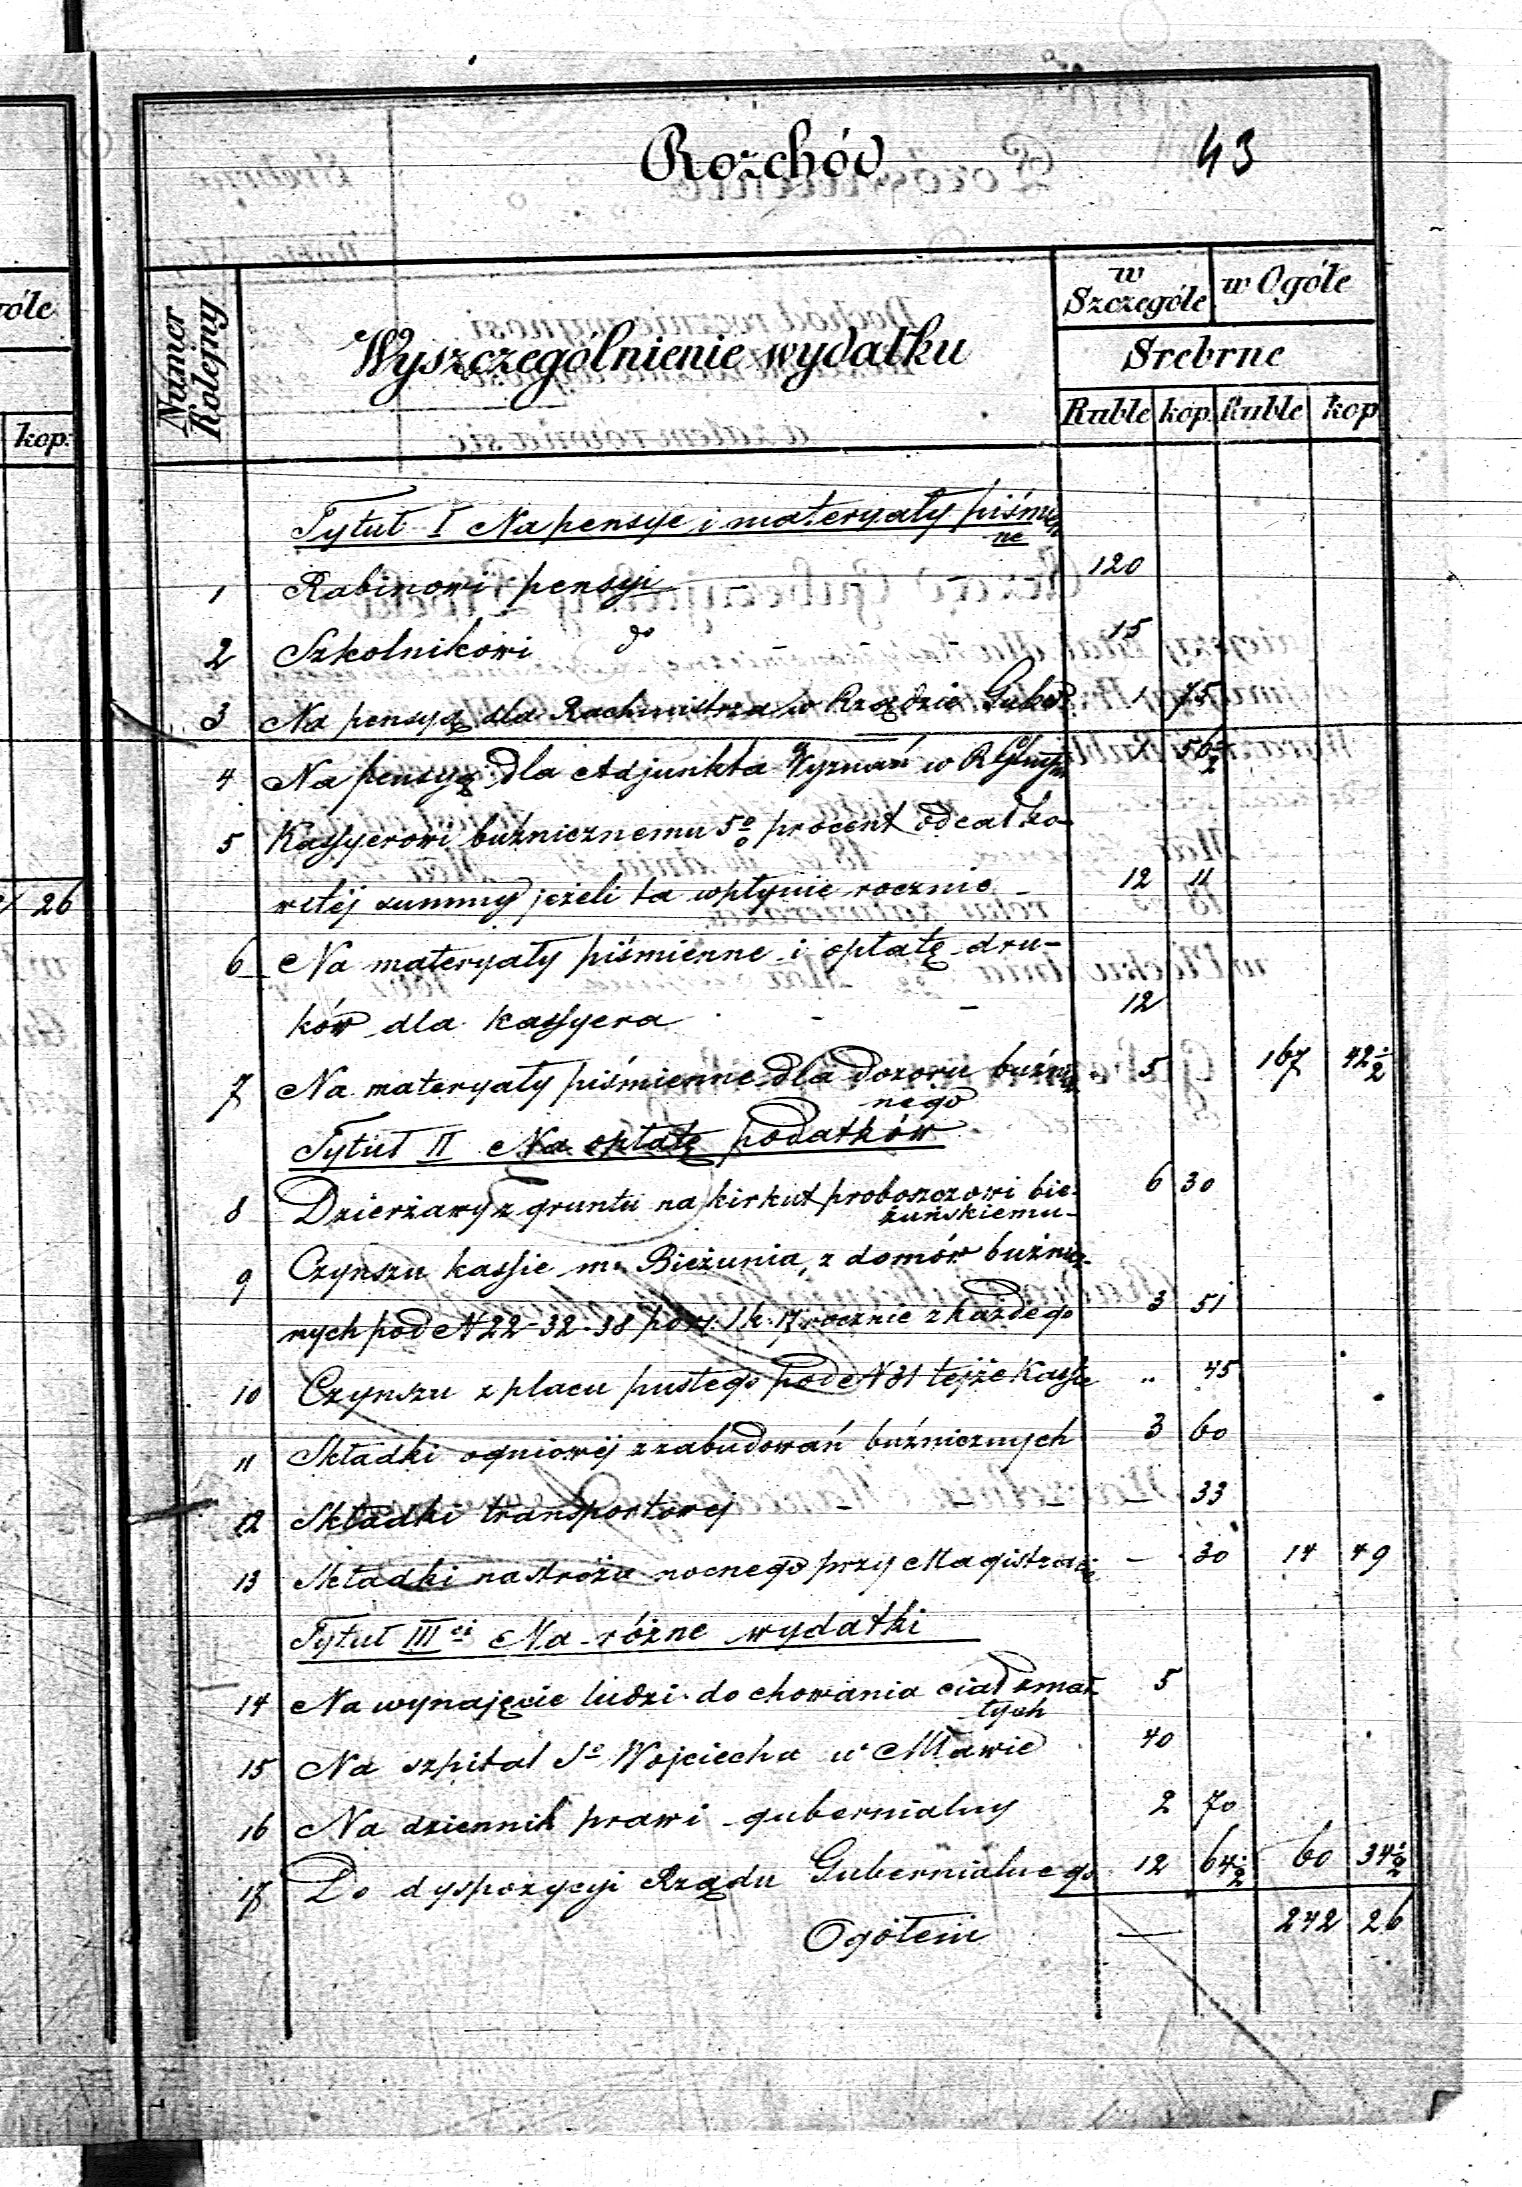 Rozchód 43
Numer Kolejny
Wyszczególnienie wydatku
w Szczególe
w Ogóle
Srebrne
Ruble kop. Ruble kop
Tytuł I Na pensye i materyały piśmien
ne
1 Rabinowi pensyi 120
2 Szkolnikowi do 15
3 Na pensyą dla Rachmistrza w Rządzie Gube 1 75
4 Na pensyą dla Adjunkta Wyznań w 1 56½
5 Kassyerowi buźnicznemu 5% procent od całko-
witéj summy jeżeli ta wpłynie rocznie 12 11
6 Na materyały piśmienne i opłatę dru-
ków dla kassyera - - 12
7 Na materyały piśmienne dla dozoru buźnicz 5 167 42½
nego
Tytuł II Na opłatę podatków
8 Dzierżawy z gruntu na kirkut proboszczowi bie- 6 30
żuńskiemu
9 Czynszu kassie m. Bieżunia, z domów buźnicz-
nych pod N 22-32-38 po rs. 1 k. 17 rocznie z każdego 3 51
10 Czynszu z placu pustego pod N 31 tejże Kassie " 45
11 Składki ogniowéj z zabudowań buźnicznych 3 60
12 Składki transportowej - - - 33
13 Składki na stróża nocnego przy Magistracie — 30 14 49
Tytuł III ci Na różne wydatki
14 Na wynajęcie ludzi do chowania ciał zmar- 5
łych
15 Na szpital So Wojciecha w Mławie 40
16 Na dziennik praw i gubernialny 2 70
17 Do dyspozycyi Rządu Gubernialnego 12 64½ 60 34½
Ogółem — 242 26
óle
kop.
26